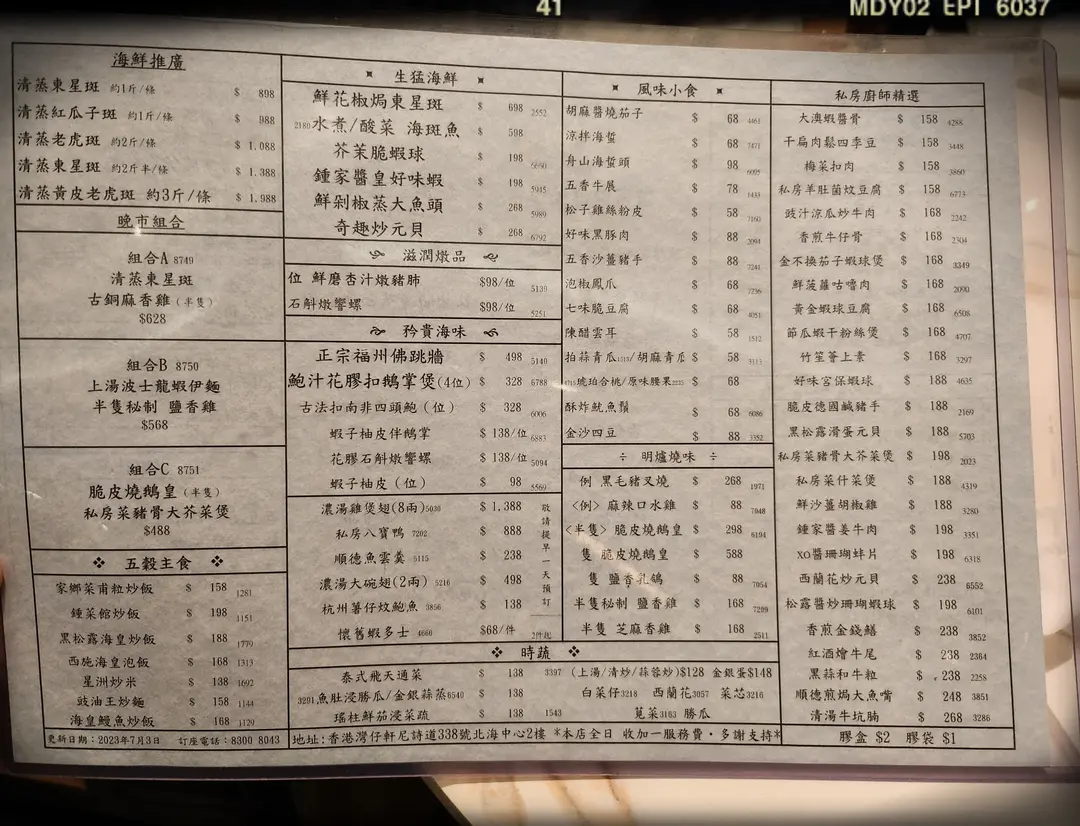 41
MDY02 EPI 6037
海鮮推廣
清蒸東星斑 約1斤/條 $ 898
清蒸紅瓜子斑 約1斤/條 $ 988
清蒸老虎斑 約2斤/條 $ 1.088
清蒸東星斑 約2斤半/條 $ 1.388
清蒸黃皮老虎斑 約3斤/條 $ 1.988
晚市組合
組合A 8749
清蒸東星斑
古銅麻香雞(半隻)
$628
組合B 8750
上湯波士龍蝦伊麵
半隻秘制 鹽香雞
$568
組合C 8751
脆皮燒鵝皇(半隻)
私房菜豬骨大芥菜煲
$488
❖ 五穀主食 ❖
家鄉菜甫粒炒飯 $ 158 1281
鍾菜館炒飯 $ 198 1151
黑松露海皇炒飯 $ 188 1779
西施海皇泡飯 $ 168 1313
星洲炒米 $ 138 1692
豉油王炒麵 $ 158 1144
海皇鰻魚炒飯 $ 168 1129
更新日期：2023年7月3日 訂座電話：8300 8043
¤ 生猛海鮮 ¤
鮮花椒焗東星斑 $ 698 2552
2180水煮/酸菜 海斑魚 $ 598
芥茉脆蝦球 $ 198
鍾家醬皇好味蝦 $ 198 5945
鮮剁椒蒸大魚頭 $ 268 5989
奇趣炒元貝 $ 268 6792
滋潤燉品
位 鮮磨杏汁燉豬肺 $98/位 5139
石斛燉響螺 $98/位 5251
矜貴海味
正宗福州佛跳牆 $ 498 5140
鮑汁花膠扣鵝掌煲(4位) $ 328 6788
古法扣南非四頭鮑(位) $ 328 6006
蝦子柚皮伴鵝掌 $ 138/位 6883
花膠石斛燉響螺 $ 138/位 5094
蝦子柚皮(位) $ 98 5569
濃湯雞煲翅(8兩)5030 $ 1,388
私房八寶鴨 7202 $ 888
順德魚雲羹 5115 $ 238
濃湯大碗翅(2兩) 5216 $ 498
杭州薯仔炆鮑魚 3856 $ 138
懷舊蝦多士 4660 $68/件 2件起
敬請提早一天預訂
❖ 時蔬 ❖
泰式飛天通菜 $ 138 3397 (上湯/清炒/蒜蓉炒)$128 金銀蛋$148
3291魚肚浸勝瓜/金銀蒜蒸6540 $ 138 白菜仔3218 西蘭花3057 菜芯3216
瑤柱鮮茄浸菜蔬 $ 138 1543 莧菜3163 勝瓜
地址:香港灣仔軒尼詩道338號北海中心2樓 *本店全日 收加一服務費，多謝支持*
¤ 風味小食 ¤
胡麻醬燒茄子 $ 68 4461
涼拌海蜇 $ 68 7471
舟山海蜇頭 $ 98 6095
五香牛展 $ 78 1433
松子雞絲粉皮 $ 58 7160
好味黑豚肉 $ 88 2094
五香沙薑豬手 $ 88 7241
泡椒鳳爪 $ 68 7256
七味脆豆腐 $ 68 4051
陳醋雲耳 $ 58 1512
拍蒜青瓜1513/胡麻青瓜 $ 58 3113
琥珀合桃/原味腰果 $ 68
酥炸魷魚鬚 $ 68 6086
金沙四豆 $ 88 3352
÷ 明爐燒味 ÷
例 黑毛豬叉燒 $ 268 1971
<例> 麻辣口水雞 $ 88 7048
<半隻> 脆皮燒鵝皇 $ 298 6194
隻 脆皮燒鵝皇 $ 588
隻 鹽香乳鴿 $ 88 7054
半隻秘制 鹽香雞 $ 168 7209
半隻 芝麻香雞 $ 168 2511
私房廚師精選
大澳蝦醬骨 $ 158 4288
干扁肉鬆四季豆 $ 158 3448
梅菜扣肉 $ 158 3860
私房羊肚菌炆豆腐 $ 158 6773
豉汁涼瓜炒牛肉 $ 168 2242
香煎牛仔骨 $ 168 2304
金不換茄子蝦球煲 $ 168 3349
鮮菠蘿咕嚕肉 $ 168 2090
黃金蝦球豆腐 $ 168 6508
節瓜蝦干粉絲煲 $ 168 4707
竹笙薈上素 $ 168 3297
好味宮保蝦球 $ 188 4635
脆皮德國鹹豬手 $ 188 2169
黑松露滑蛋元貝 $ 188 5703
私房菜豬骨大芥菜煲 $ 198 2023
私房菜什菜煲 $ 188 4319
鮮沙薑胡椒雞 $ 188 3280
鍾家醬姜牛肉 $ 198 3351
XO醬珊瑚蚌片 $ 198 6318
西蘭花炒元貝 $ 238 6552
松露醬炒珊瑚蝦球 $ 198 6101
香煎金錢鱔 $ 238 3852
紅酒燴牛尾 $ 238 2364
黑蒜和牛粒 $ 238 2258
順德煎焗大魚嘴 $ 248 3851
清湯牛坑腩 $ 268 3286
膠盒 $2 膠袋 $1